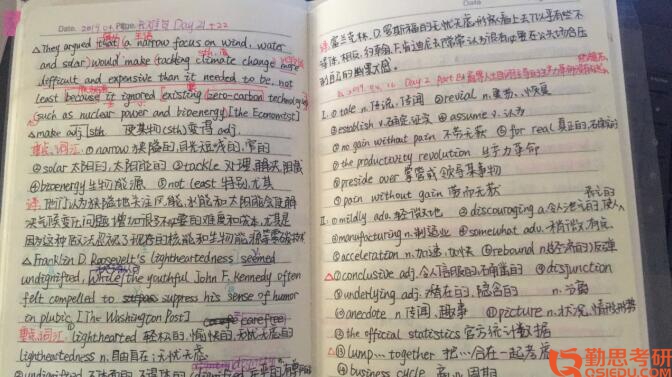 Date. 2019.04. Page. Day 21+22
△They argued that a narrow focus on wind, water
and solar would make tackling climate change more
difficult and expensive than it needed to be, not
least because it ignored existing zero-carbon technology
(such as nuclear power and bioenergy) [the Economist]
△make adj | sth. 使某物(sth)变得 adj.
重点词汇: ①narrow 狭隘的, 目光短浅的, 窄的
②solar 太阳的, 太阳能的 ③tackle 处理, 解决, 阻截
④bioenergy 生物能源 ⑤not least 特别, 尤其
译: 他们认为狭隘地关注风能, 水能和太阳能会使解
决气候变化问题增加很多不必要的难度和成本, 尤其是
因为这种做法忽视了现存的核能和生物能源等零碳技术
△Franklin D. Roosevelt's lightheartedness seemed
undignified, while the youthful John F. Kennedy often
felt compelled to suppress his sense of humor
in plubic. [The Washington Post]
carefree
重点词汇: lighthearted 轻松的, 愉快的, 无忧无虑的
lightheartedness n. 自由自在; 无忧无虑.
①undignified
译: 富兰克林.D.罗斯福的无忧无虑
制自己的幽默感.
Day 2 Part B
I. ①tale n. 传说, 传闻 ②revial n. 复苏, 恢复
③establish v. 确定, 证实 ④assume v. 认为
⑤no gain without pain 不劳无获 ⑥for real 真正的, 不确定的
⑦the productivity revolution 生产力革命
⑧preside over 掌管或领导某事物
⑨pain without gain 劳而无获
II. ①mildly adv. 轻微地 ②discouraging a. 令人泄气的
③manufacturing n. 制造业 ④somewhat adv. 稍微, 有点
⑤acceleration n. 加速, 加快 ⑥rebound n. 经济的反弹
△⑦conclusive adj. 令人信服的, 不确凿的 ⑧disjunction
⑨underlying adj. 潜在的, 隐含的 n. 分离
⑩anecdote n 传闻, 趣事 ⑪picture n. 状况, 情形, 形势
⑫the official statistics 官方统计数据
△⑬lump...together 把...合在一起考虑
⑭business cycle 商业周期
勤思考研
QSIEDU.COM